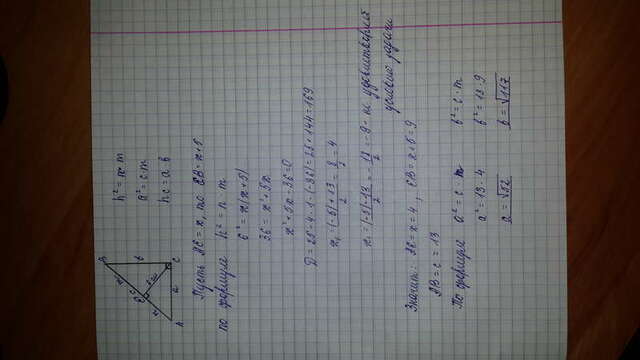 h² = n m
a² = c · m
h c = a b
Пусть AE = x, то EB = x+5
по формуле h² = n m
6² = x(x+5)
36 = x²+5x
x²+5x-36=0
D = 25-4·1·(-36) = 25+144=169
x₁ = (-5)+13 / 2 = 8/2 = 4
x₂ = (-5)-13 / 2 = -18/2 = -9 - не удовлетворяет
условию задачи
Значит: AE = x = 4, EB = x+5 = 9
AB = c = 13
По формуле a² = c · m b² = c · m
a² = 13 · 4 b² = 13 · 9
a = √52 b = √117